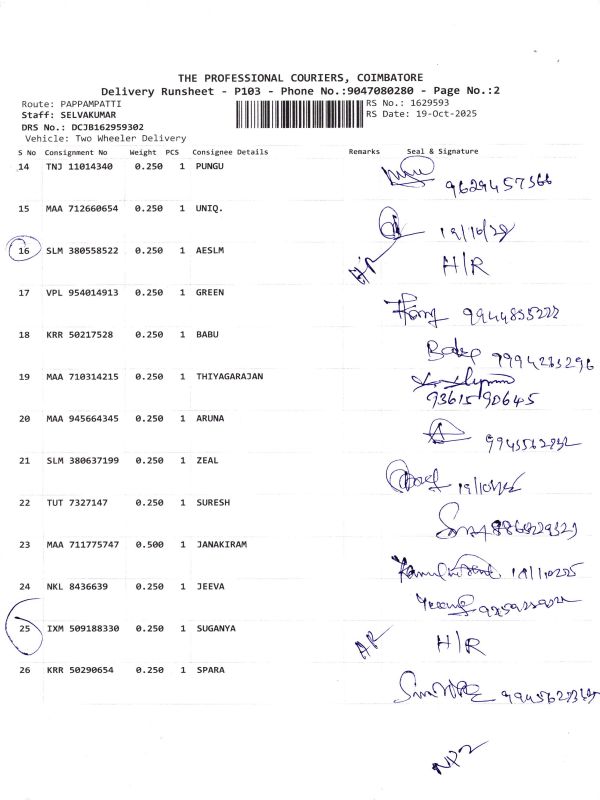 THE PROFESSIONAL COURIERS, COIMBATORE
Delivery Runsheet - P103 - Phone No.:9047080280 - Page No.:2
Route: PAPPAMPATTI RS No.: 1629593
Staff: SELVAKUMAR RS Date: 19-Oct-2025
DRS No.: DCJB162959302
Vehicle: Two Wheeler Delivery
S No Consignment No Weight PCS Consignee Details Remarks Seal & Signature
14 TNJ 11014340 0.250 1 PUNGU
9629457366
15 MAA 712660654 0.250 1 UNIQ.
16 SLM 380558522 0.250 1 AESLM H/R
17 VPL 954014913 0.250 1 GREEN
18 KRR 50217528 0.250 1 BABU
9994263296
19 MAA 710314215 0.250 1 THIYAGARAJAN
93615 90645
20 MAA 945664345 0.250 1 ARUNA
21 SLM 380637199 0.250 1 ZEAL
22 TUT 7327147 0.250 1 SURESH
23 MAA 711775747 0.500 1 JANAKIRAM
24 NKL 8436639 0.250 1 JEEVA
25 IXM 509188330 0.250 1 SUGANYA H/R
26 KRR 50290654 0.250 1 SPARA